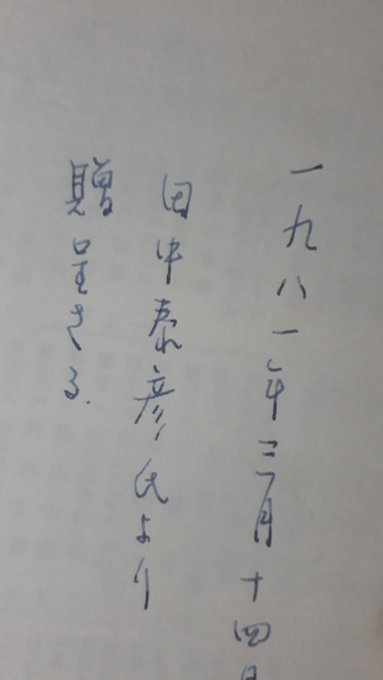 一九八一年三月十四日
田中泰彦氏より
贈呈さる.